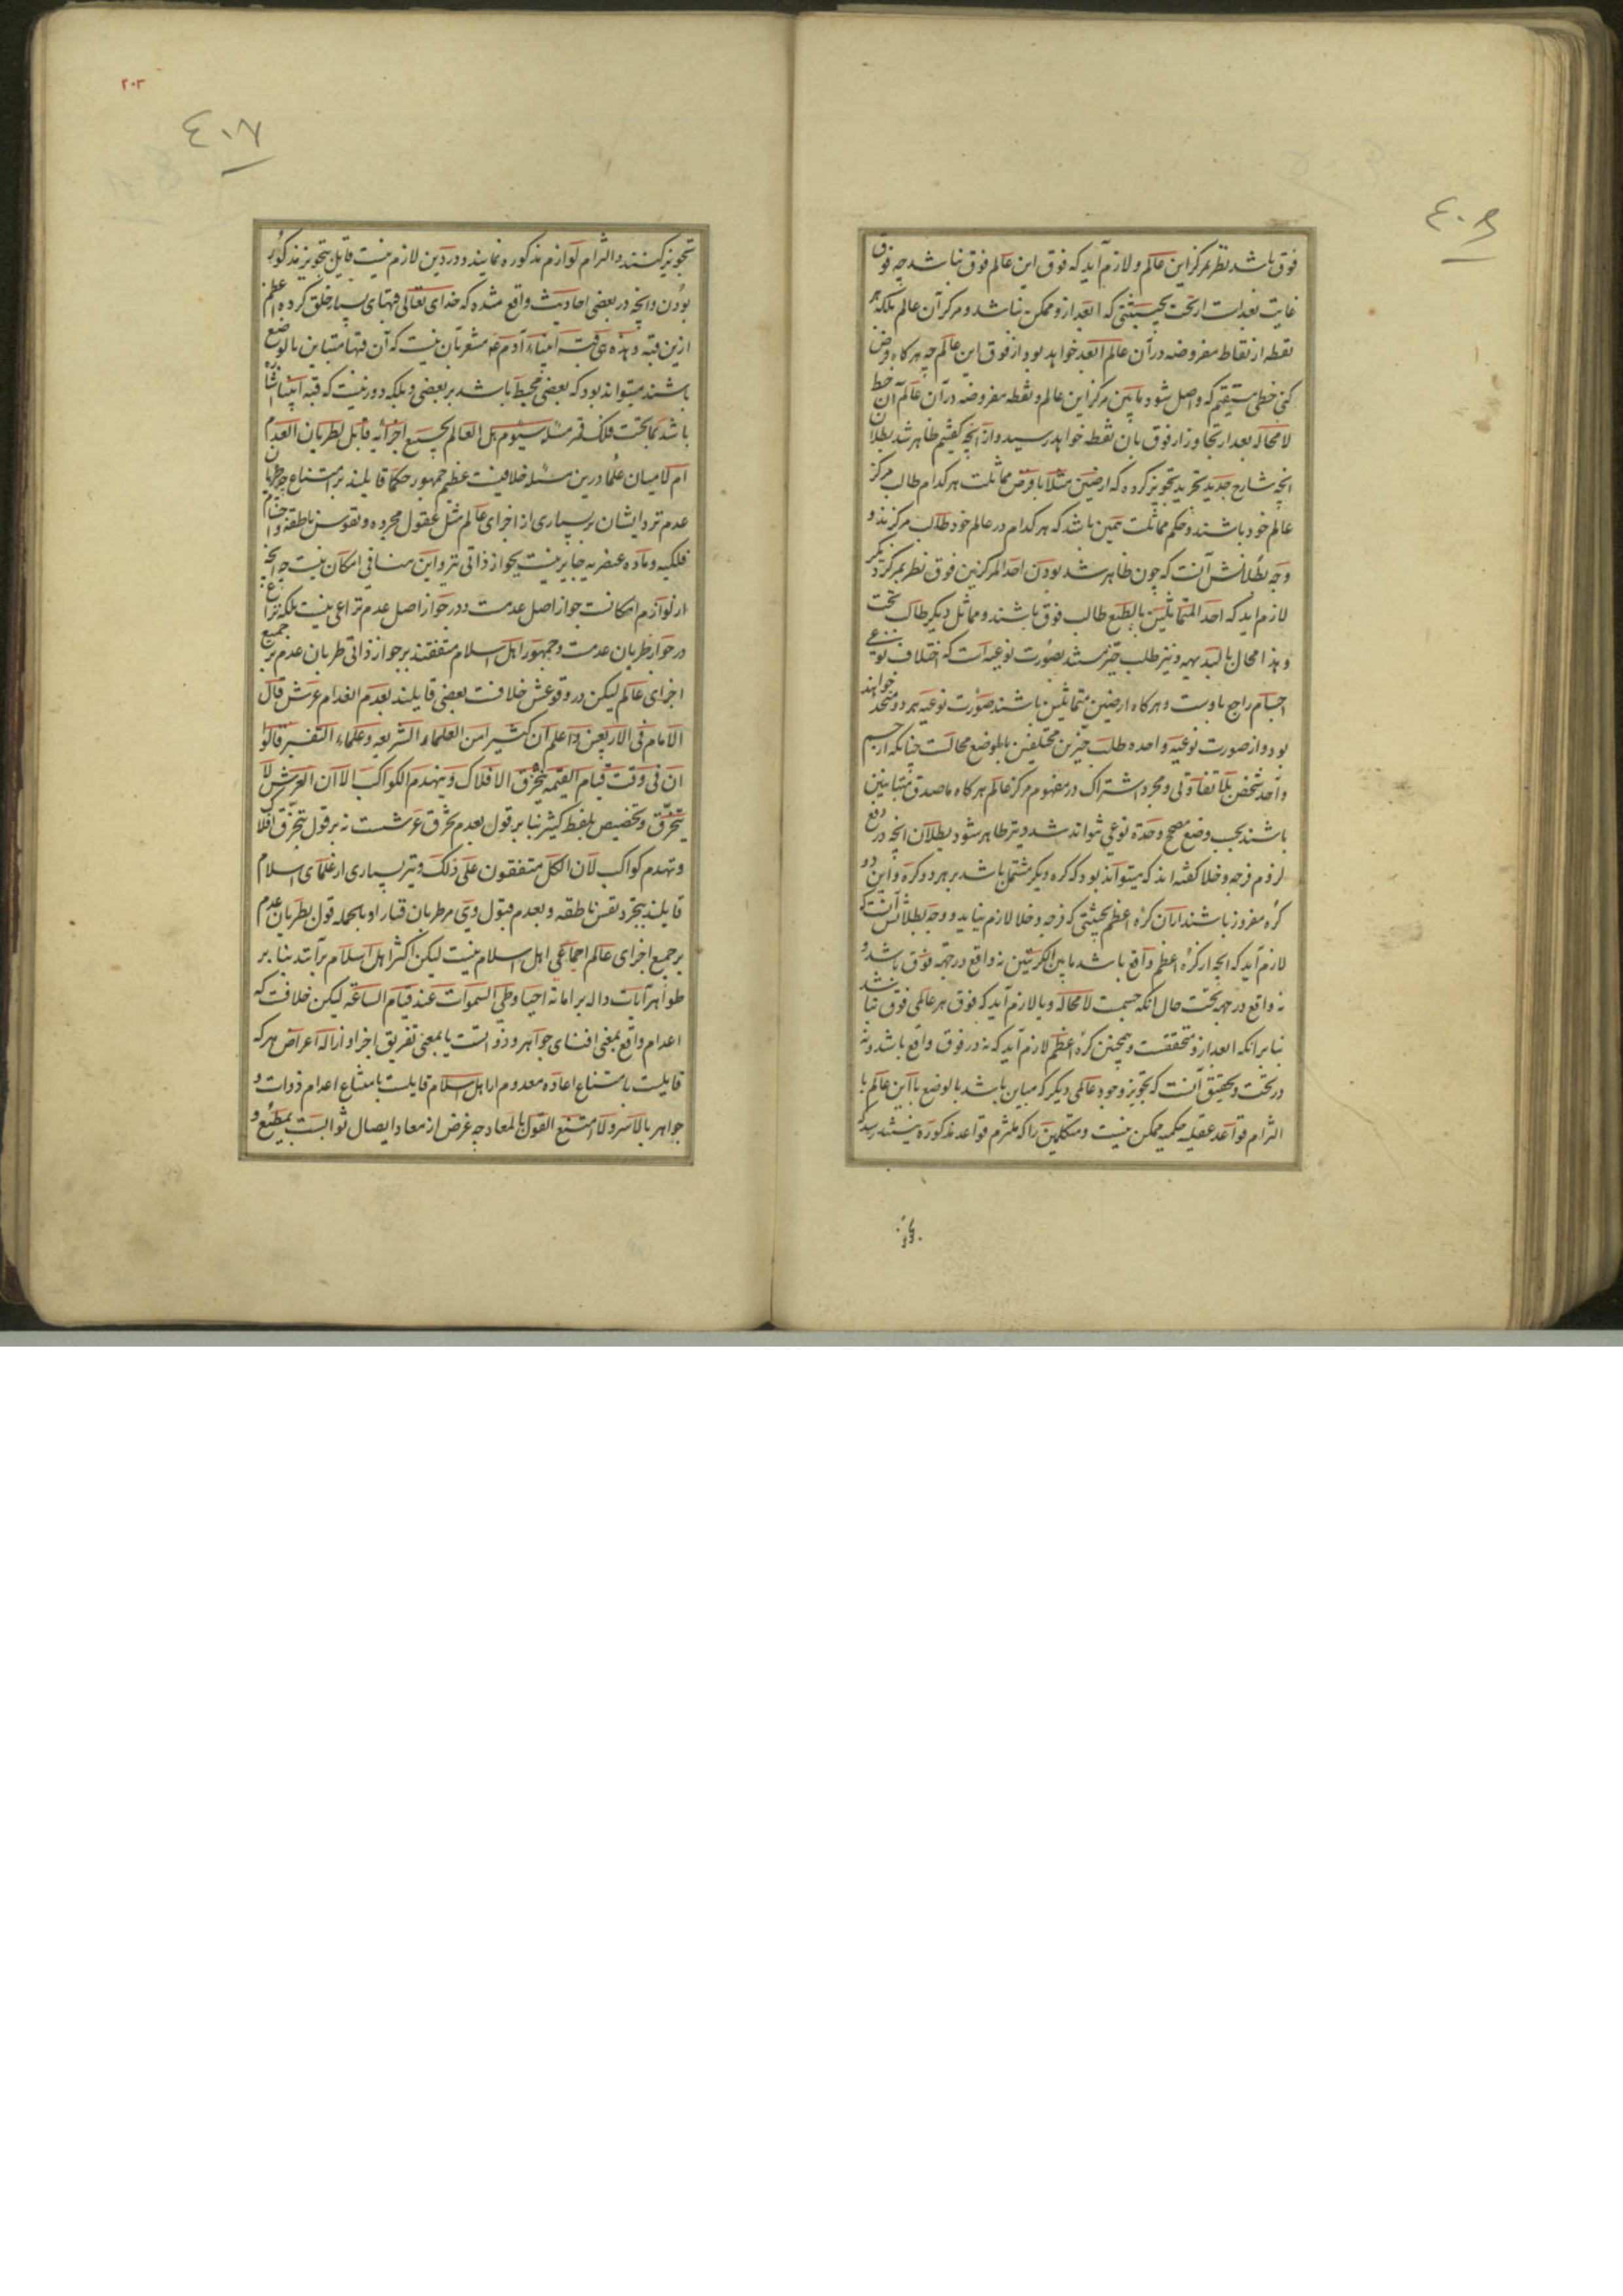 ٤٠٦
فوق باشد نظر بمرکز این عالم و لازم آید که فوق این عالم فوق نباشد چه فوق
غایت بعد است از تحت بحیثیتی که ابعد ازو ممکن نباشد و مرکز آن عالم بلکه هر
نقطه از نقاط مفروضه در آن عالم ابعد خواهد بود از فوق این عالم چه هر کاه فرض
کنی خطی مستقیم که واصل شود مابین مرکز این عالم و نقطه مفروضه در آن عالم آن خط
لا محاله بعد از تجاوز از فوق بان نقطه خواهد رسید و از آنچه کفتیم ظاهر شد بطلان
انچه شارح جدید تجرید تجویز کرده که ارضین مثلا با فرض مماثلت هر کدام طالب مرکز
عالم خود باشند و حکم مماثلت همین باشد که هر کدام در عالم خود طالب مرکزند و
وجه بطلانش آنست که چون ظاهر شد بودن احد المرکزین فوق نظر بمرکز دیگر
لازم اید که احد المتماثلین بالطبع طالب فوق باشند و مماثل دیکر طالب تحت
و هذا محال بالبدیهه و نیز طلب حیز مستند بصورت نوعیه است که اختلاف نوعی
اجسام راجع باوست و هر کاه ارضین متماثلین باشند صورت نوعیه هر دو متحد خواهند
بود و از صورت نوعیه واحده طلب حیزین مختلفین بالوضع محالست چنانکه از جسم
واحد شخصی بلا تفاوتی و مجرد اشتراک در مفهوم مرکز عالم هر کاه ماصدق متباینین
باشند بحسب وضع مصحح وحدة نوعی نتواند شد و نیز ظاهر شود بطلان انچه در دفع
لزوم فرجه و خلا کفته اند که میتواند بود که کره دیکر مشتمل باشد بر هر دو کره و این دو
کره مفروز باشند از آن کره اعظم بحیثیتی که فرجه و خلا لازم نیاید و وجه بطلانش آنست که
لازم آید که انچه از کره اعظم واقع باشد مابین الکرتین نه واقع در جهة فوق باشد و
نه واقع در جهة تحت حال انکه جسمست لا محاله و یا لازم آید که فوق هر عالمی فوق نباشد
بنا بر انکه ابعد ازو متحققست و همچنین کره اعظم لازم آید که نه در فوق واقع باشد و نه
در تحت و تحقیق آنست که تجویز وجود عالمی دیکر که مباین باشد بالوضع با این عالم با
التزام قواعد عقلیه حکمیه ممکن نیست و متکلمین را که ملتزم قواعد مذکوره نیستند رسد که
٢٠٣
٤٠٧
تجویز کنند و التزام لوازم مذکوره نمایند و در دین لازم نیست قایل بتجویز مذکور
بودن و انچه در بعضی احادیث واقع شده که خدای تعالی قبهای بسیار خلق کرده اعظم
ازین قبه و هذه هی قبه ابیناء آدم ع مشعر بآن نیست که آن قبها متباین بالوضع
باشند میتواند بود که بعضی محیط باشد بر بعضی و بلکه دور نیست که قبه ابینا اشاره
باشد بما تحت فلک قمر مسئله سیوم هل العالم بجمیع اجزائه قابل لطریان العدم
ام لا میان علما درین مسئله خلافیست عظیم جمهور حکما قایلند بر امتناع جواز طریان
عدم نزد ایشان بر بسیاری از اجزای عالم مثل عقول مجرده و نفوس ناطقه و اجسام
فلکیه و ماده عنصریه جایز نیست بجواز ذاتی نیز و این منافی امکان نیست چه انچه
از لوازم امکانست جواز اصل عدمست و در جواز اصل عدم نزاعی نیست بلکه نزاع
در جواز طریان عدمست و جمهور اهل اسلام متفقند بر جواز ذاتی طریان عدم بر جمیع
اجزای عالم لیکن در وقوعش خلافست بعضی قایلند بعدم انعدام عرش قال
الامام فی الاربعین و اعلم ان کثیرا من العلماء الشریعه و علماء التفسیر قالوا
ان فی وقت قیام القیمه ینخرق الافلاک و ینهدم الکواکب الا ان العرش لا
یتخرق و تخصیص بلفظ کثیر بنا بر قول بعدم تخرق عرشست نه بر قول بتخرق افلاک
و تهدم کواکب لان الکل متفقون علی ذلک و نیز بسیاری از علمای اسلام
قایلند بتجرد نفس ناطقه و بعدم قبول وی مر طریان فنا را و بالجمله قول بطریان عدم
بر جمیع اجزای عالم اجماعی اهل اسلام نیست لیکن اکثر اهل اسلام برآنند بنا بر
ظواهر آیات داله بر اماته احیا و طی السموات عند قیام الساعة لیکن خلافست که
اعدام واقع بمعنی افنای جواهر و ذواتست یا بمعنی تفریق اجزا و ازاله اعراض هر که
قایلست بامتناع اعاده معدوم از اهل اسلام قایلست بامتناع اعدام ذوات و
جواهر بالاسر و الا امتنع القول بالمعاد چه غرض از معاد ایصال ثوابست بمطیع و